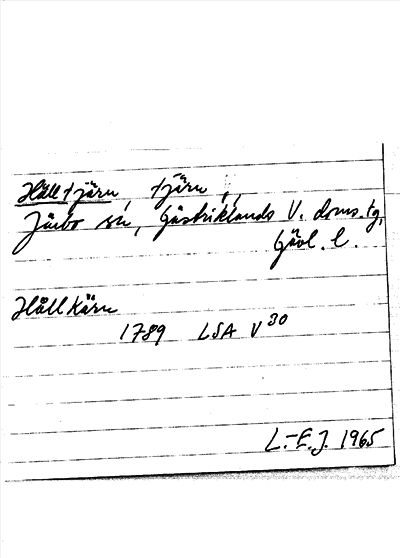 Hålltjärn, tjärn,
Järbo sn, Gästriklands V. doms.tg,
Gävl. l.
Hållkärn
1789 LSA V 30
L.-E.J. 1965